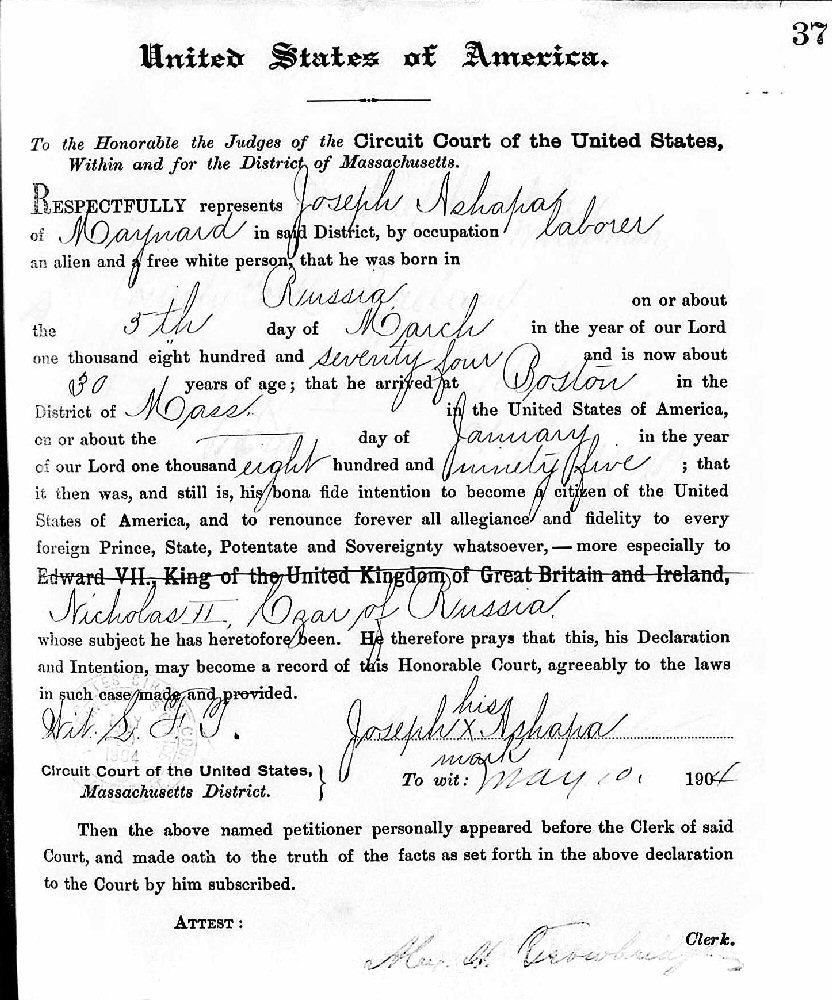 37
United States of America.
To the Honorable the Judges of the Circuit Court of the United States,
Within and for the District of Massachusetts.
RESPECTFULLY represents Joseph Ashapa
of Maynard in said District, by occupation laborer
an alien and a free white person, that he was born in
Russia on or about
the 5th day of March in the year of our Lord
one thousand eight hundred and seventy four and is now about
30 years of age; that he arrived at Boston in the
District of Mass. in the United States of America,
on or about the — day of January in the year
of our Lord one thousand eight hundred and ninety five ; that
it then was, and still is, his bona fide intention to become a citizen of the United
States of America, and to renounce forever all allegiance and fidelity to every
foreign Prince, State, Potentate and Sovereignty whatsoever,—more especially to
Edward VII., King of the United Kingdom of Great Britain and Ireland,
Nicholas II, Czar of Russia
whose subject he has heretofore been. He therefore prays that this, his Declaration
and Intention, may become a record of this Honorable Court, agreeably to the laws
in such case made and provided.
his
Wit. S. F. T. Joseph X Ashapa
mark
Circuit Court of the United States,
Massachusetts District.
To wit: May 10, 1904
Then the above named petitioner personally appeared before the Clerk of said
Court, and made oath to the truth of the facts as set forth in the above declaration
to the Court by him subscribed.
ATTEST:
Clerk.
Trowbridge